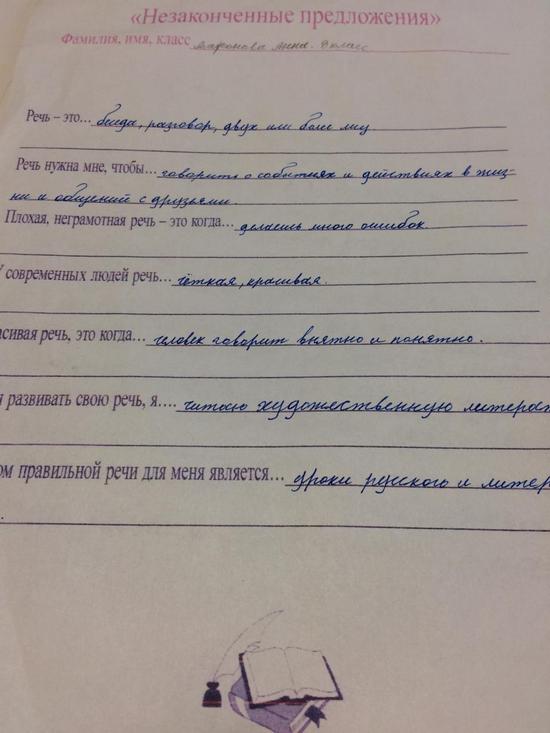 «Незаконченные предложения»
Фамилия, имя, класс Миронова Анна. 8 класс
Речь – это... беседа, разговор, двух или более лиц.
Речь нужна мне, чтобы... говорить о событиях и действиях в жиз-
ни и общений с друзьями.
Плохая, неграмотная речь – это когда... делаешь много ошибок.
У современных людей речь... чёткая, красивая.
асивая речь, это когда... человек говорит внятно и понятно.
я развивать свою речь, я.... читаю художественную литерат
ом правильной речи для меня является... уроки русского и литер
.